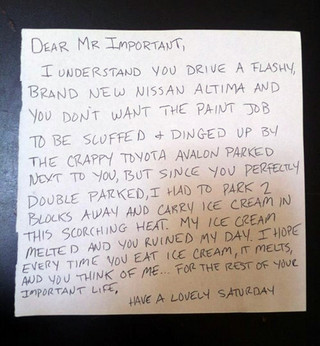 DEAR MR IMPORTANT,
I UNDERSTAND YOU DRIVE A FLASHY,
BRAND NEW NISSAN ALTIMA AND
YOU DON'T WANT THE PAINT JOB
TO BE SCUFFED & DINGED UP BY
THE CRAPPY TOYOTA AVALON PARKED
NEXT TO YOU, BUT SINCE YOU PERFECTLY
DOUBLE PARKED, I HAD TO PARK 2
BLOCKS AWAY AND CARRY ICE CREAM IN
THIS SCORCHING HEAT. MY ICE CREAM
MELTED AND YOU RUINED MY DAY. I HOPE
EVERY TIME YOU EAT ICE CREAM, IT MELTS,
AND YOU THINK OF ME... FOR THE REST OF YOUR
IMPORTANT LIFE.
HAVE A LOVELY SATURDAY